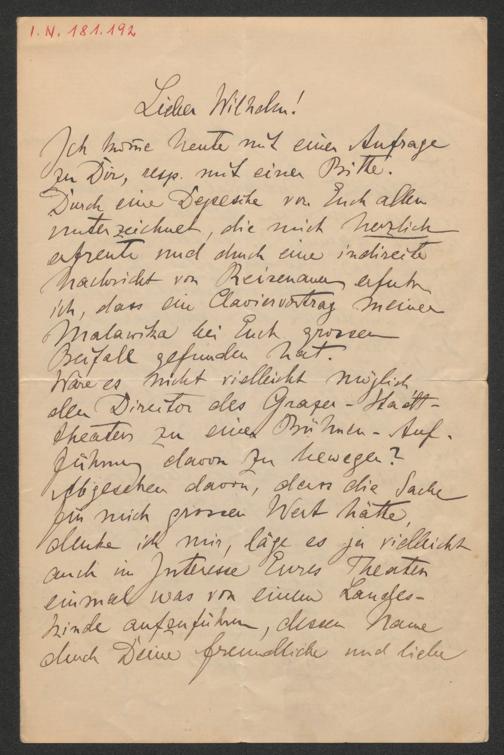 I.N. 181.192
Lieber Wilhelm!
Ich kom̄e heute mit einer Anfrage
zu Dir, resp. mit einer Bitte.
Durch eine Depesche von Euch allen
unterzeichnet, die mich herzlich
erfreute und durch eine indirecte
Nachricht von Reizenauer erfuhr
ich, dass ein Claviervortrag meiner
Malawika bei Euch grossen
Beifall gefunden hat.
Wäre es nicht vielleicht möglich
den Director des Grazer-Stadt-
theaters zu einer Bühnen-Auf-
führung davon zu bewegen?
Abgesehen davon, dass die Sache
für mich grossen Wert hätte,
denke ich mir, läge es ja vielleicht
auch im Interesse Eures Theaters
einmal was von einem Landes-
kinde aufzuführen, dessen Name
durch Deine freundliche und liebe